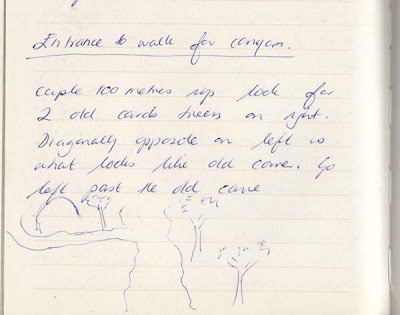 Entrance to walk for canyon.
cuple 100 metres up look for
2 old trees on right.
Diagonally opposite on left is
what looks like old cave. Go
left past the old cave